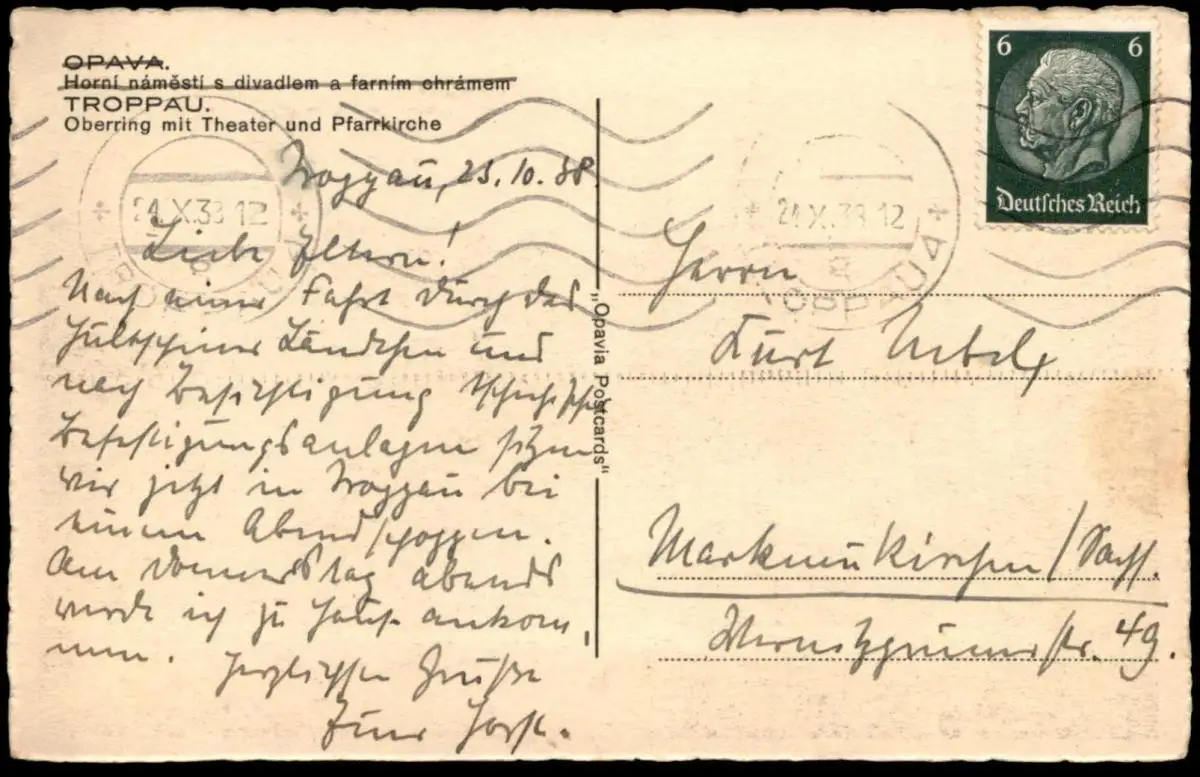 OPAVA.
Horní náměstí s divadlem a farním chrámem
TROPPAU.
Oberring mit Theater und Pfarrkirche
Troppau, 23.10.38
Liebe Eltern!
Nach einer Fahrt durch das
Hultschiner Ländchen und
nach Besichtigung tschechischer
Befestigungsanlagen sitzen
wir jetzt in Troppau bei
einem Abendschoppen.
Am Donnerstag abends
werde ich zu Hause ankom-
men. Herzlichste Grüße
Euer Horst.
„Opavia Postcards"
6 6
Deutsches Reich
24.X.38 12
TROPPAU
24.X.38 12
TROPPAU 4
Herrn
Kurt
Markneukirchen/Sachs.
Wernitzgrünerstr. 49.